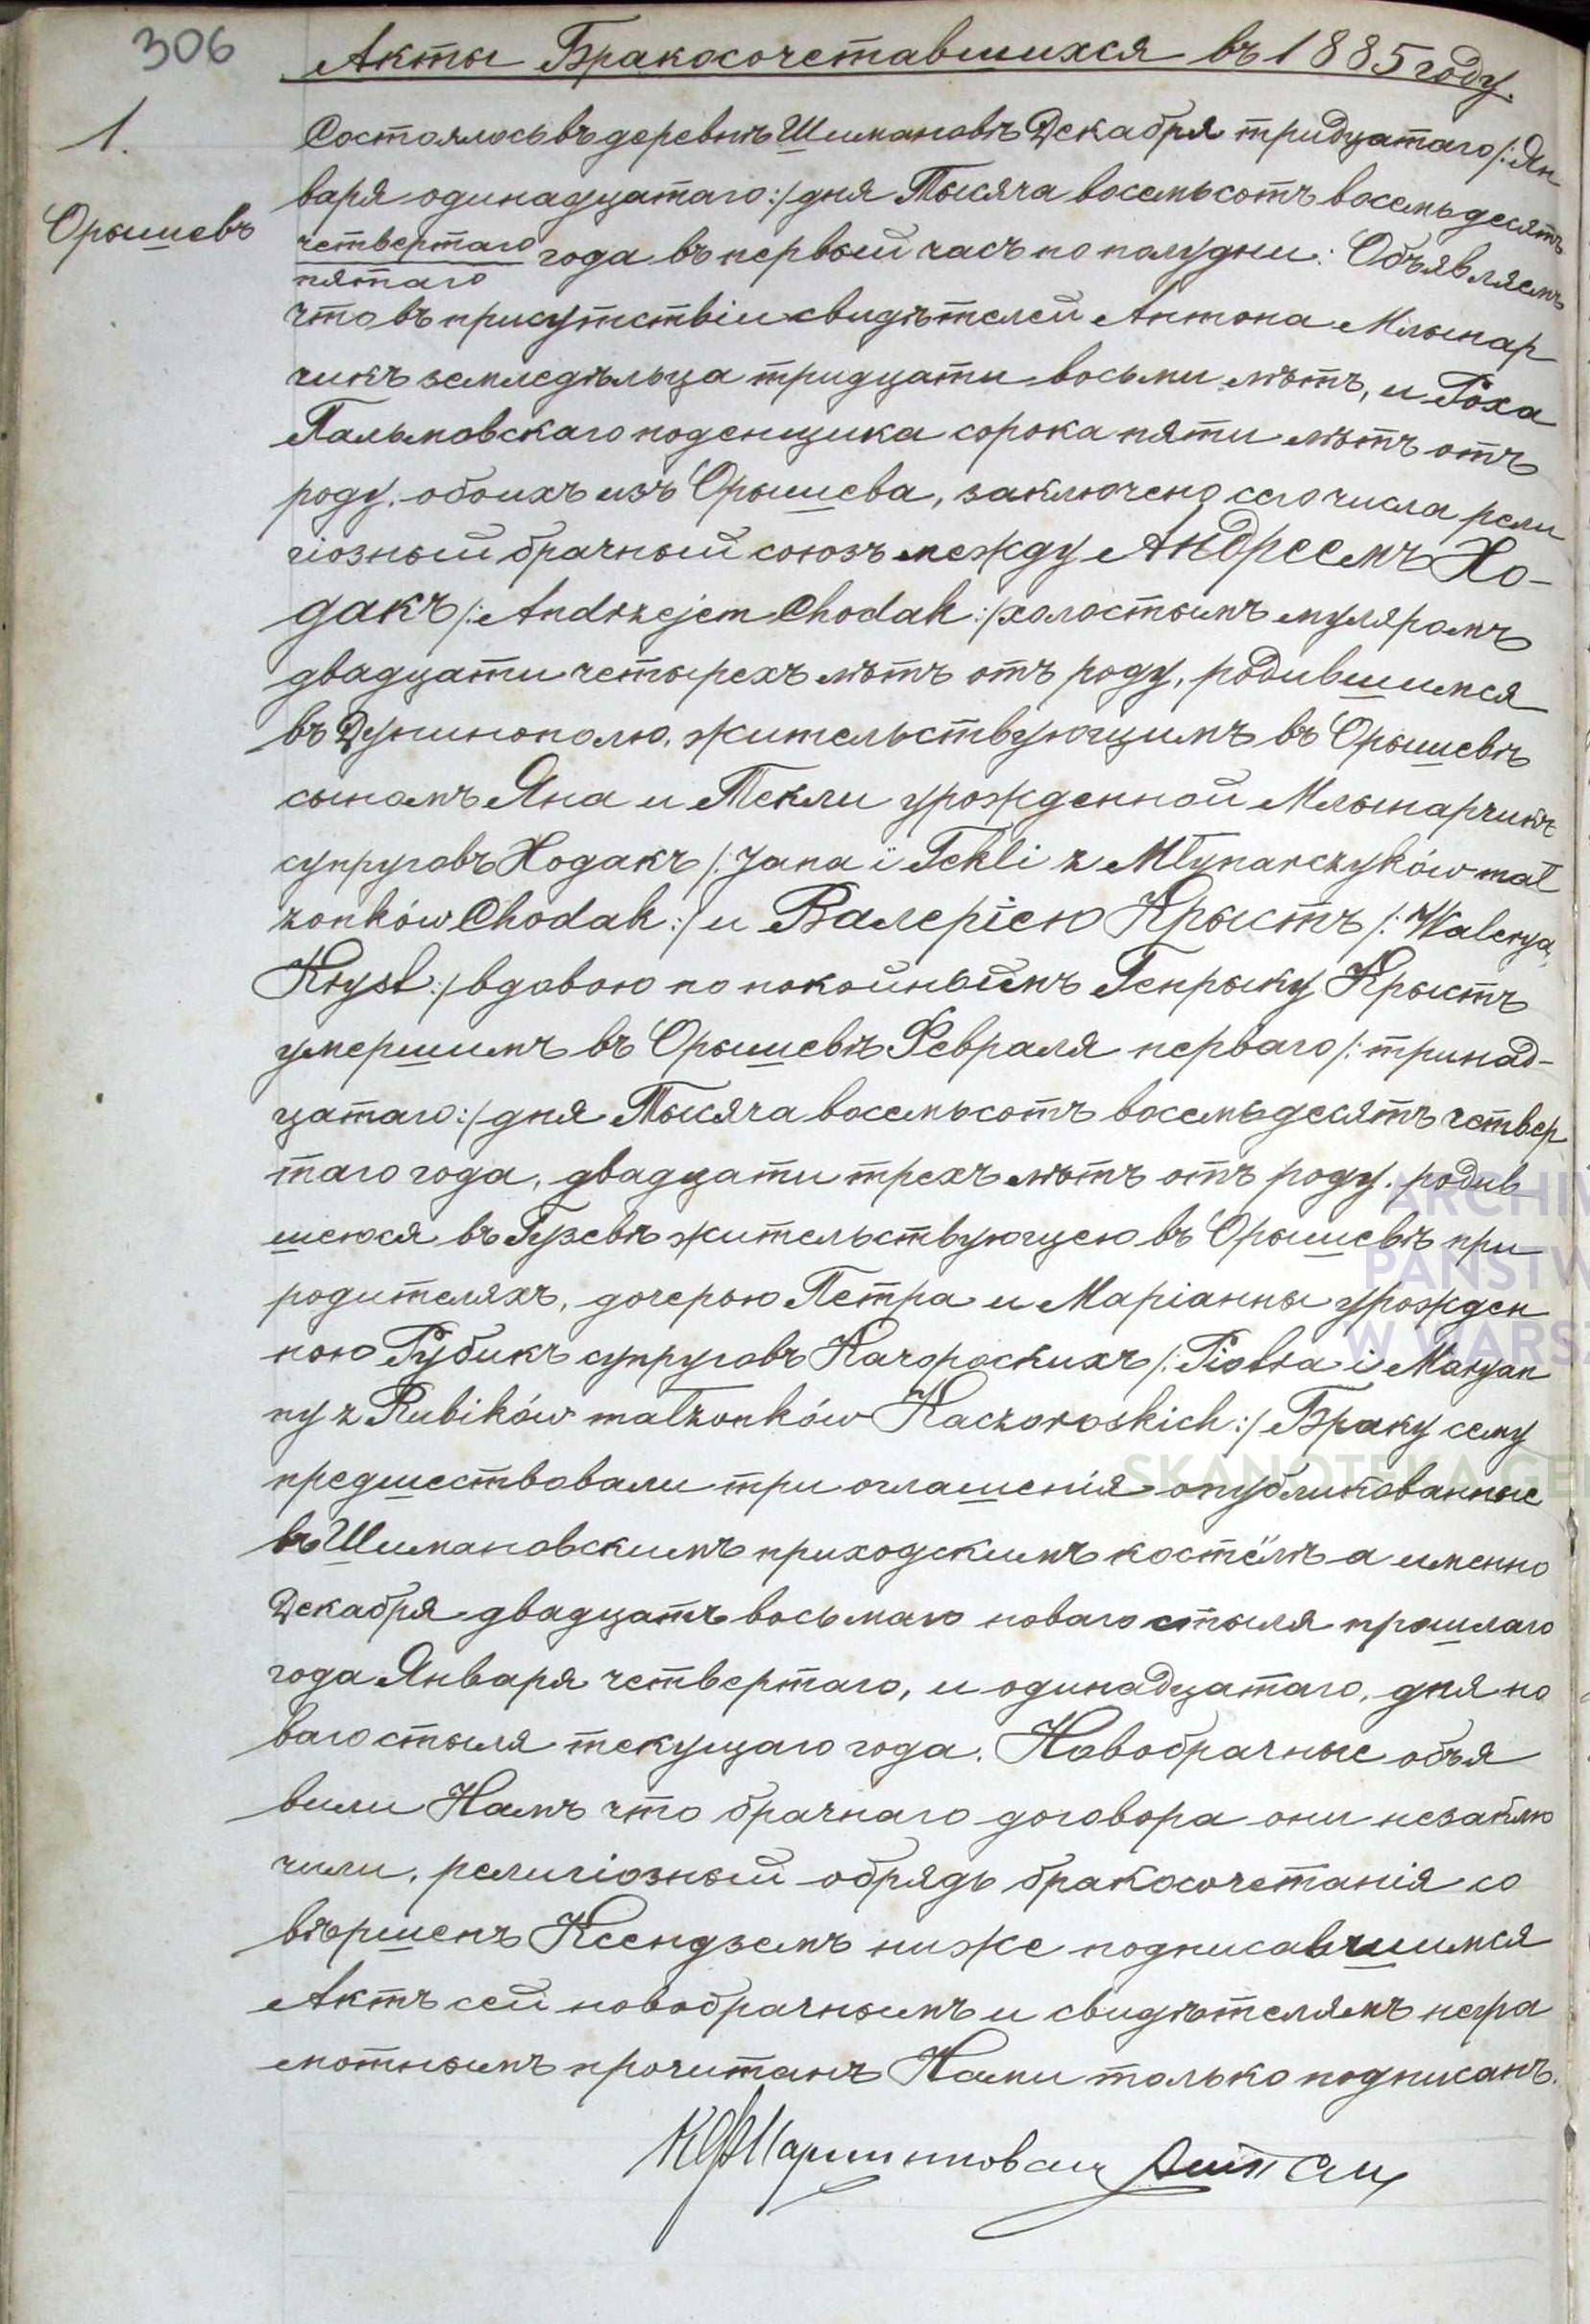 306
Акты Бракосочетавшихся въ 1885 году.
1.
Орышевъ
Состоялось въ деревнѣ Шимановѣ Декабря тридцатаго /: Ян
варя одинадцатаго :/ дня Тысяча восемьсотъ восемьдесятъ
четвертаго
пятаго
года въ первый часъ по полудни: Объявляемъ
что въ присутствіи свидѣтелей Антона Млынар
чикъ земледѣльца тридцати восьми лѣтъ, и Роха
Пальмовскаго поденщика сорока пяти лѣтъ отъ
роду, обоихъ изъ Орышева, заключено сего числа рели
гіозный брачный союзъ между Андреемъ Хо-
дакъ /: Andrzejem Chodak :/ холостымъ муляромъ
двадцати четырехъ лѣтъ отъ роду, родившимся
въ Дунинополю, жительствующимъ въ Орышевѣ
сыномъ Яна и Текли урожденной Млынарчикъ
супруговъ Ходакъ /: Jana i Tekli z Młynarczyków mał
żonków Chodak :/ и Валеріею Крыстъ /: Waleryą
Kryst :/ вдовою по покойнымъ Генрыку Крыстъ
умершимъ въ Орышевѣ Февраля перваго /: тринад-
цатаго :/ дня Тысяча восемьсотъ восемьдесятъ четвер
таго года, двадцати трехъ лѣтъ отъ роду, родив
шеюся въ Гузевѣ жительствующею въ Орышевѣ при
родителяхъ, дочерью Петра и Маріанны урожден
ною Рубикъ супруговъ Качороскихъ /: Piotra i Maryan
ny z Rubików małżonków Kaczoroskich :/ Браку сему
предшествовали три оглашенія опубликованные
въ Шимановскимъ приходскимъ костёлѣ а именно
Декабря двадцать восьмаго новаго стыля прошлаго
года Января четвертаго, и одинадцатаго, дня но
ваго стыля текущаго года. Новобрачные объя
вили Намъ что брачнаго договора они незаклю
чили, религіозный обрядъ бракосочетанія со
вѣршенъ Ксендземъ ниже подписавшимся
Актъ сей новобрачнымъ и свидѣтелямъ негра
мотнымъ прочитанъ Нами только подписанъ.
ARCHIW
PAŃSTW
W WARSZ
SKANOTEKA GE